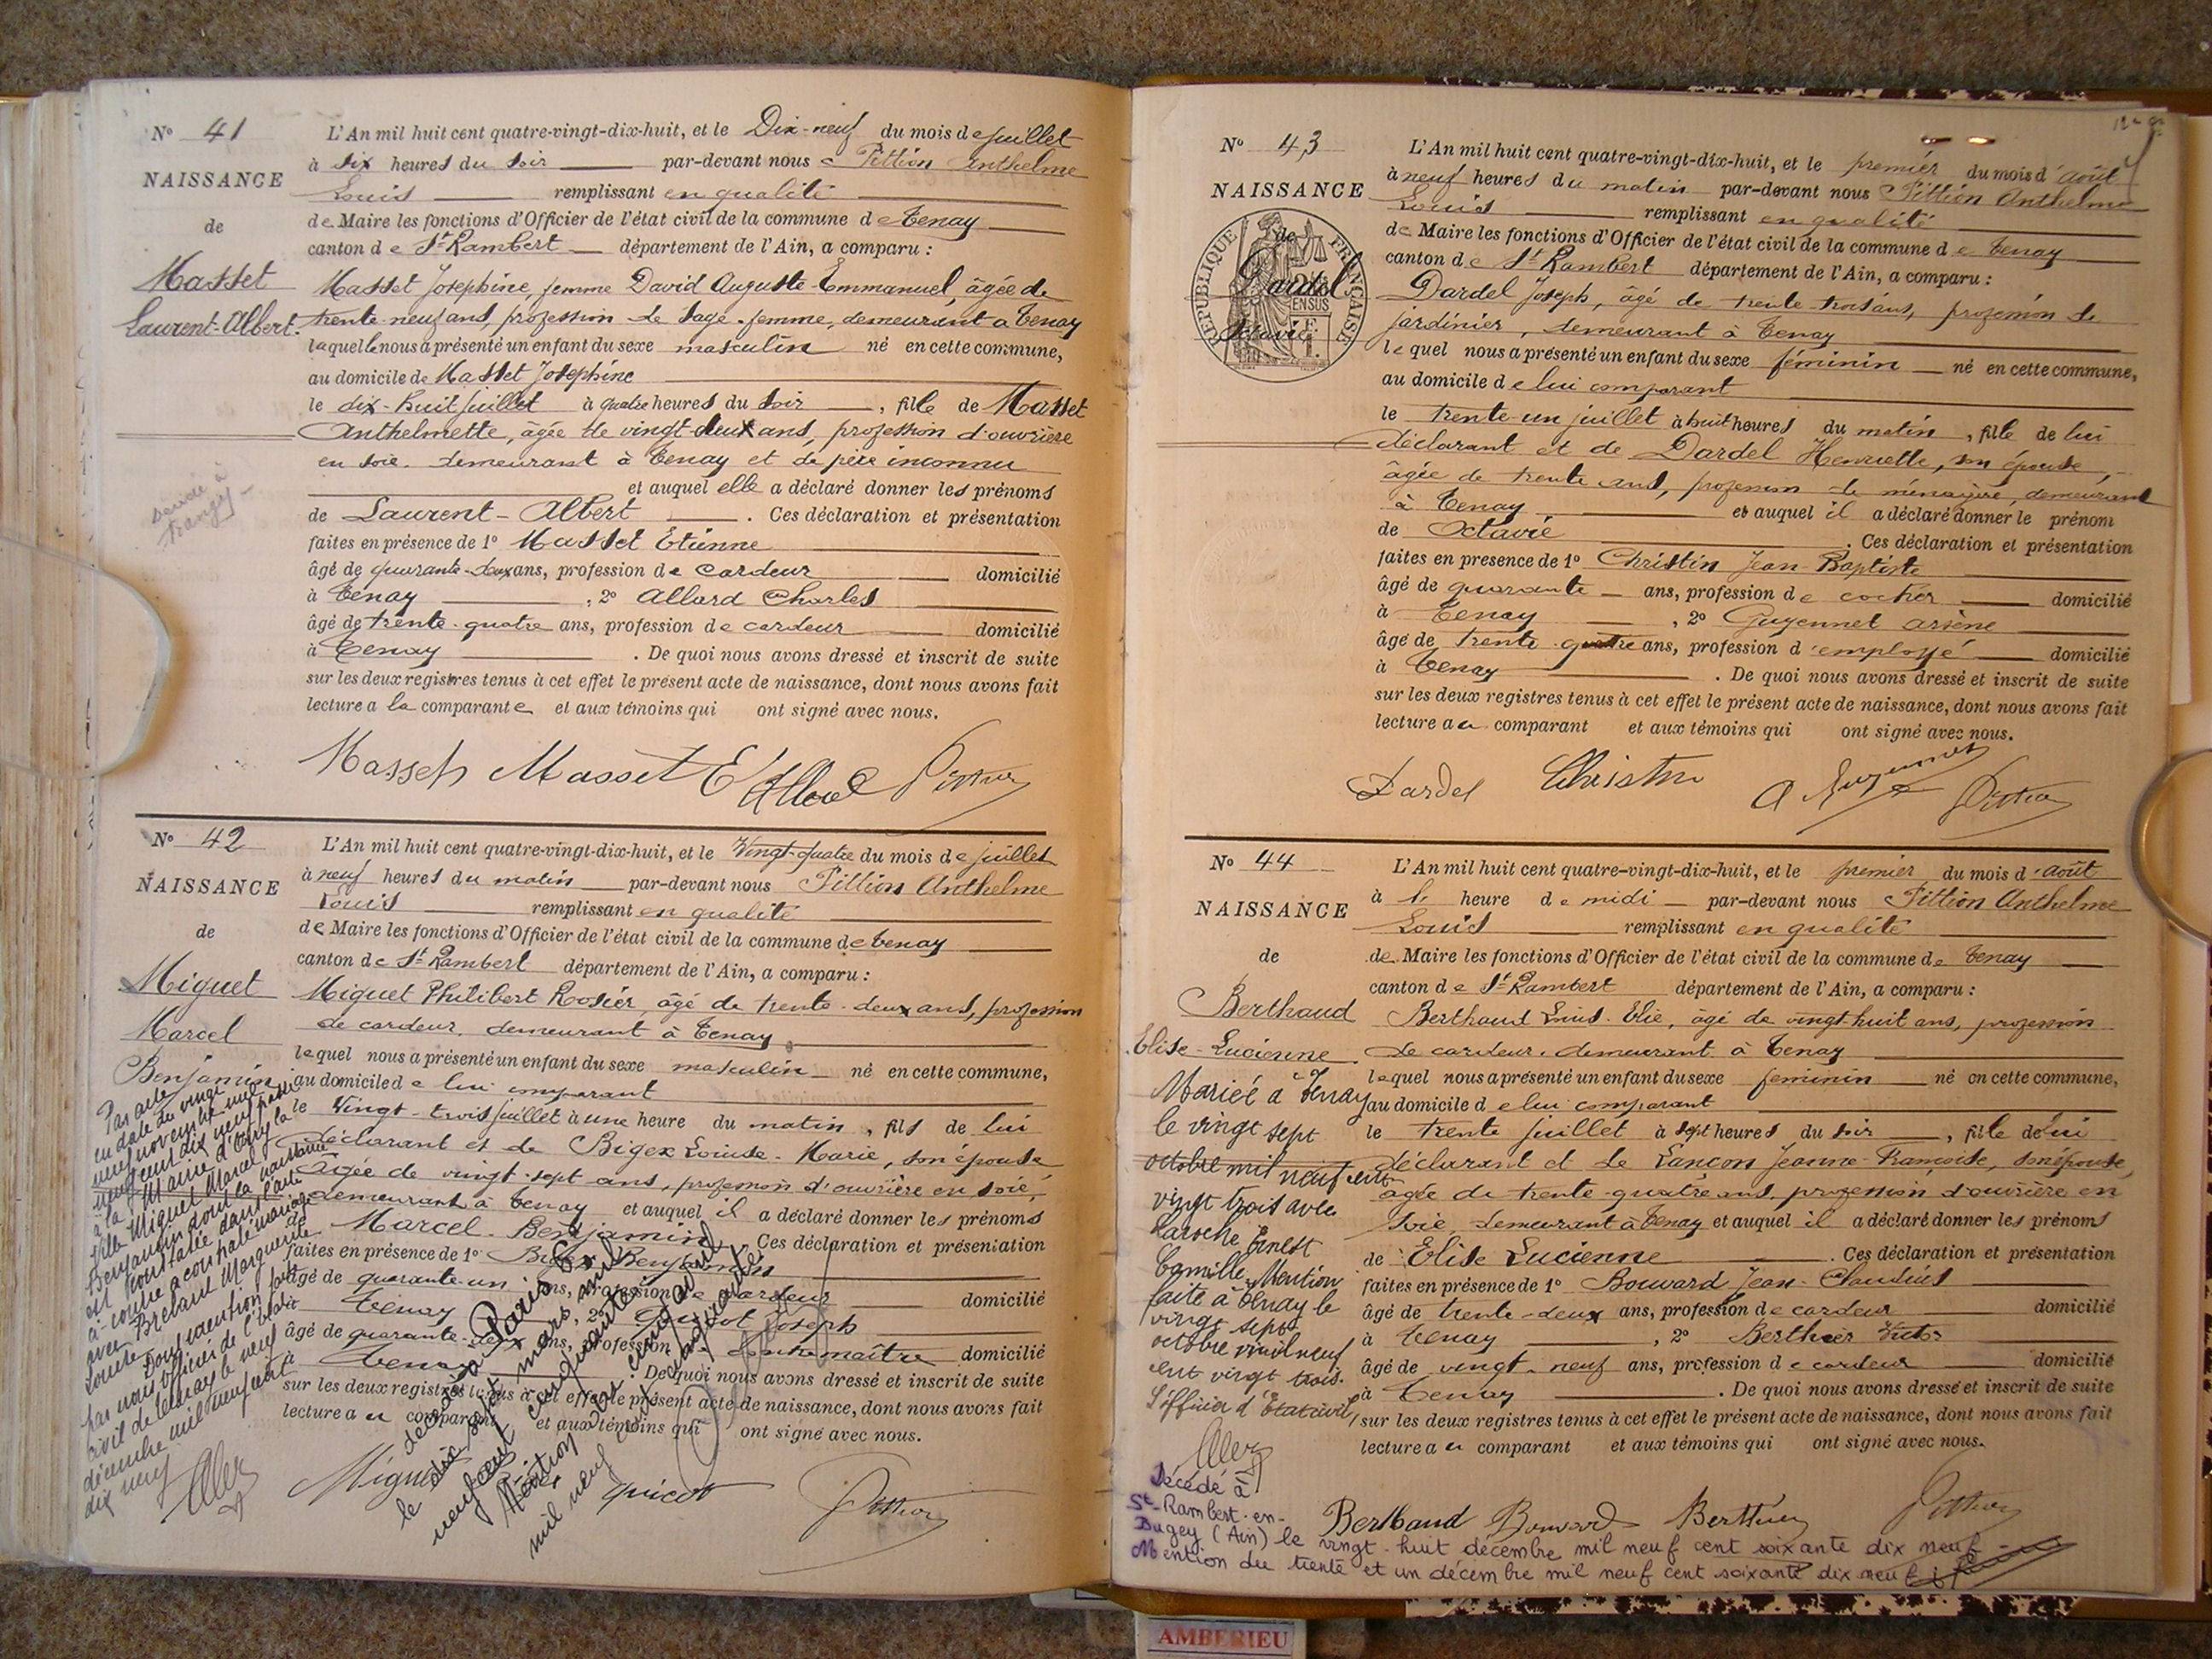 N° 41
NAISSANCE
de
Masset
Laurent-Albert.
L'An mil huit cent quatre-vingt-dix-huit, et le Dix-neuf du mois de juillet
à six heures du soir par-devant nous Pittion Anthelme
Louis remplissant en qualité
de Maire les fonctions d'Officier de l'état civil de la commune de Tenay
canton de St Rambert département de l'Ain, a comparu :
Masset Josephine, femme David Auguste Emmanuel, âgée de
trente-neuf ans, profession de sage-femme, demeurant à Tenay
laquelle nous a présenté un enfant du sexe masculin né en cette commune,
au domicile de Masset Josephine
le dix-huit juillet à quatre heures du soir, fils de Masset
Anthelmette, âgée de vingt-deux ans, profession d'ouvrière
en soie demeurant à Tenay et de père inconnu
et auquel elle a déclaré donner les prénoms
de Laurent-Albert. Ces déclaration et présentation
faites en présence de 1° Masset Etienne
âgé de quarante-deux ans, profession de cardeur domicilié
à Tenay, 2° Allard Charles
âgé de trente-quatre ans, profession de cardeur domicilié
à Tenay. De quoi nous avons dressé et inscrit de suite
sur les deux registres tenus à cet effet le présent acte de naissance, dont nous avons fait
lecture a la comparante et aux témoins qui ont signé avec nous.
Masset E
N° 42
NAISSANCE
de
Miguet
Marcel
Benjamin
L'An mil huit cent quatre-vingt-dix-huit, et le Vingt-quatre du mois de juillet
à neuf heures du matin par-devant nous Pittion Anthelme
Louis remplissant en qualité
de Maire les fonctions d'Officier de l'état civil de la commune de Tenay
canton de St Rambert département de l'Ain, a comparu :
Miguet Philibert Rosier, âgé de trente-deux ans, profession
de cardeur, demeurant à Tenay
lequel nous a présenté un enfant du sexe masculin né en cette commune,
au domicile de lui comparant
le Vingt-trois juillet à une heure du matin, fils de lui
déclarant et de Bigex Louise-Marie, son épouse
âgée de vingt-sept ans, profession d'ouvrière en soie,
demeurant à Tenay et auquel il a déclaré donner les prénoms
de Marcel-Benjamin. Ces déclaration et présentation
faites en présence de 1° Bigex Benjamin
âgé de quarante-un ans, profession de cardeur domicilié
à Tenay, 2° Quicot Joseph
âgé de quarante-deux ans, profession de contremaître domicilié
à Tenay. De quoi nous avons dressé et inscrit de suite
sur les deux registres tenus à cet effet le présent acte de naissance, dont nous avons fait
lecture a u comparant et aux témoins qui ont signé avec nous.
Par acte
en date du vingt
neuf novembre mil
neuf cent dix neuf passé
à la Mairie
Miguet Marcel
Benjamin dont la naissance
est constatée dans l'acte
ci-contre a contracté mariage
avec Brelaud Marguerite
Louise
Dont mention faite
par nous officier de l'état
civil de Tenay le neuf
décembre mil neuf cent
dix neuf
décédé à Paris
le dix sept mars mil
neuf cent cinquante
Mention
mil neuf cent cinquante
Miguet Quicot Pittion
N° 43
NAISSANCE
de
Dardel
Octavie
RÉPUBLIQUE FRANÇAISE
L'An mil huit cent quatre-vingt-dix-huit, et le premier du mois d'août
à neuf heures du matin par-devant nous Pittion Anthelme
Louis remplissant en qualité
de Maire les fonctions d'Officier de l'état civil de la commune de Tenay
canton de St Rambert département de l'Ain, a comparu :
Dardel Joseph, âgé de trente-trois ans, profession de
jardinier, demeurant à Tenay
lequel nous a présenté un enfant du sexe féminin né en cette commune,
au domicile de lui comparant
le trente-un juillet à huit heures du matin, fille de lui
déclarant et de Dardel Henriette, son épouse,
âgée de trente ans, profession de ménagère, demeurant
à Tenay et auquel il a déclaré donner le prénom
de Octavie. Ces déclaration et présentation
faites en présence de 1° Christin Jean-Baptiste
âgé de quarante ans, profession de cocher domicilié
à Tenay, 2° Guyennet Arsène
âgé de trente-quatre ans, profession d'employé domicilié
à Tenay. De quoi nous avons dressé et inscrit de suite
sur les deux registres tenus à cet effet le présent acte de naissance, dont nous avons fait
lecture a u comparant et aux témoins qui ont signé avec nous.
Dardel Christin Pittion
N° 44
NAISSANCE
de
Berthaud
Elise-Lucienne
L'An mil huit cent quatre-vingt-dix-huit, et le premier du mois d'août
à l' heure de midi par-devant nous Pittion Anthelme
Louis remplissant en qualité
de Maire les fonctions d'Officier de l'état civil de la commune de Tenay
canton de St Rambert département de l'Ain, a comparu :
Berthaud Louis-Elie, âgé de vingt-huit ans, profession
de cardeur, demeurant à Tenay
lequel nous a présenté un enfant du sexe féminin né en cette commune,
au domicile de lui comparant
le trente juillet à sept heures du soir, fille de lui
déclarant et de Lançon Jeanne-Françoise, son épouse,
âgée de trente-quatre ans, profession d'ouvrière en
soie, demeurant à Tenay et auquel il a déclaré donner les prénoms
de Elise Lucienne. Ces déclaration et présentation
faites en présence de 1° Bouvard Jean-Claudius
âgé de trente-deux ans, profession de cardeur domicilié
à Tenay, 2° Berthier Victor
âgé de vingt-neuf ans, profession de cardeur domicilié
à Tenay. De quoi nous avons dressé et inscrit de suite
sur les deux registres tenus à cet effet le présent acte de naissance, dont nous avons fait
lecture a u comparant et aux témoins qui ont signé avec nous.
Mariée à Tenay
le vingt sept
octobre mil neuf cent
vingt trois avec
Laroche Ernest
Camille. Mention
faite à Tenay le
vingt sept
octobre mil neuf
cent vingt trois.
L'officier d'Etat civil,
Berthaud Bouvard Berthier Pittion
Décédé à
St-Rambert-en-
Bugey (Ain) le vingt-huit décembre mil neuf cent soixante dix neuf
Mention du trente et un décembre mil neuf cent soixante dix neuf
AMBERIEU